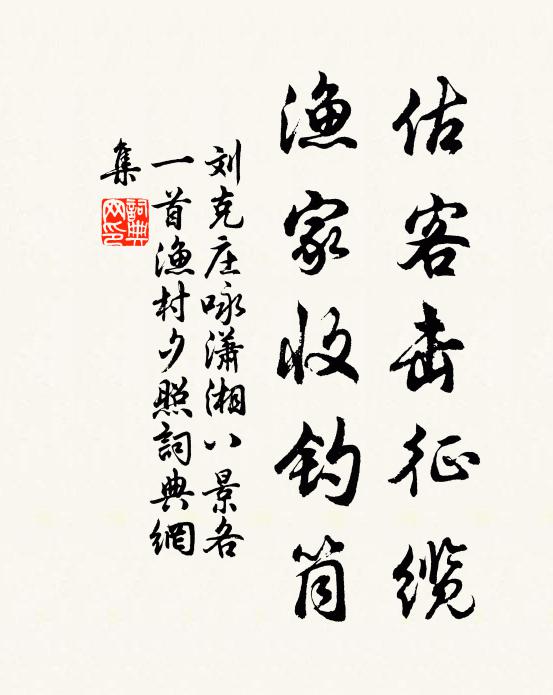 估客击征缆
渔家收钓筒
刘克庄咏瀟湘八景各
一首渔村夕照詞典網
集
詞典
网印